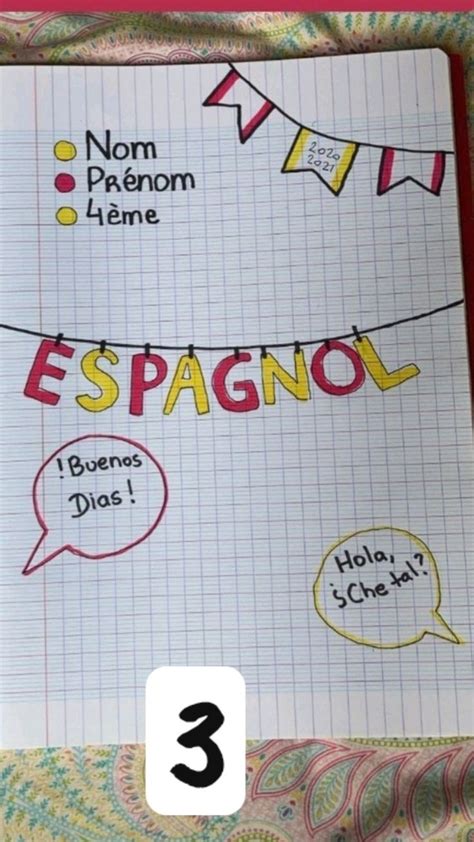 2020
2021
Nom
Prénom
4ème
ESPAGNOL
¡Buenos
Dias!
Hola,
¿Che tal?
3